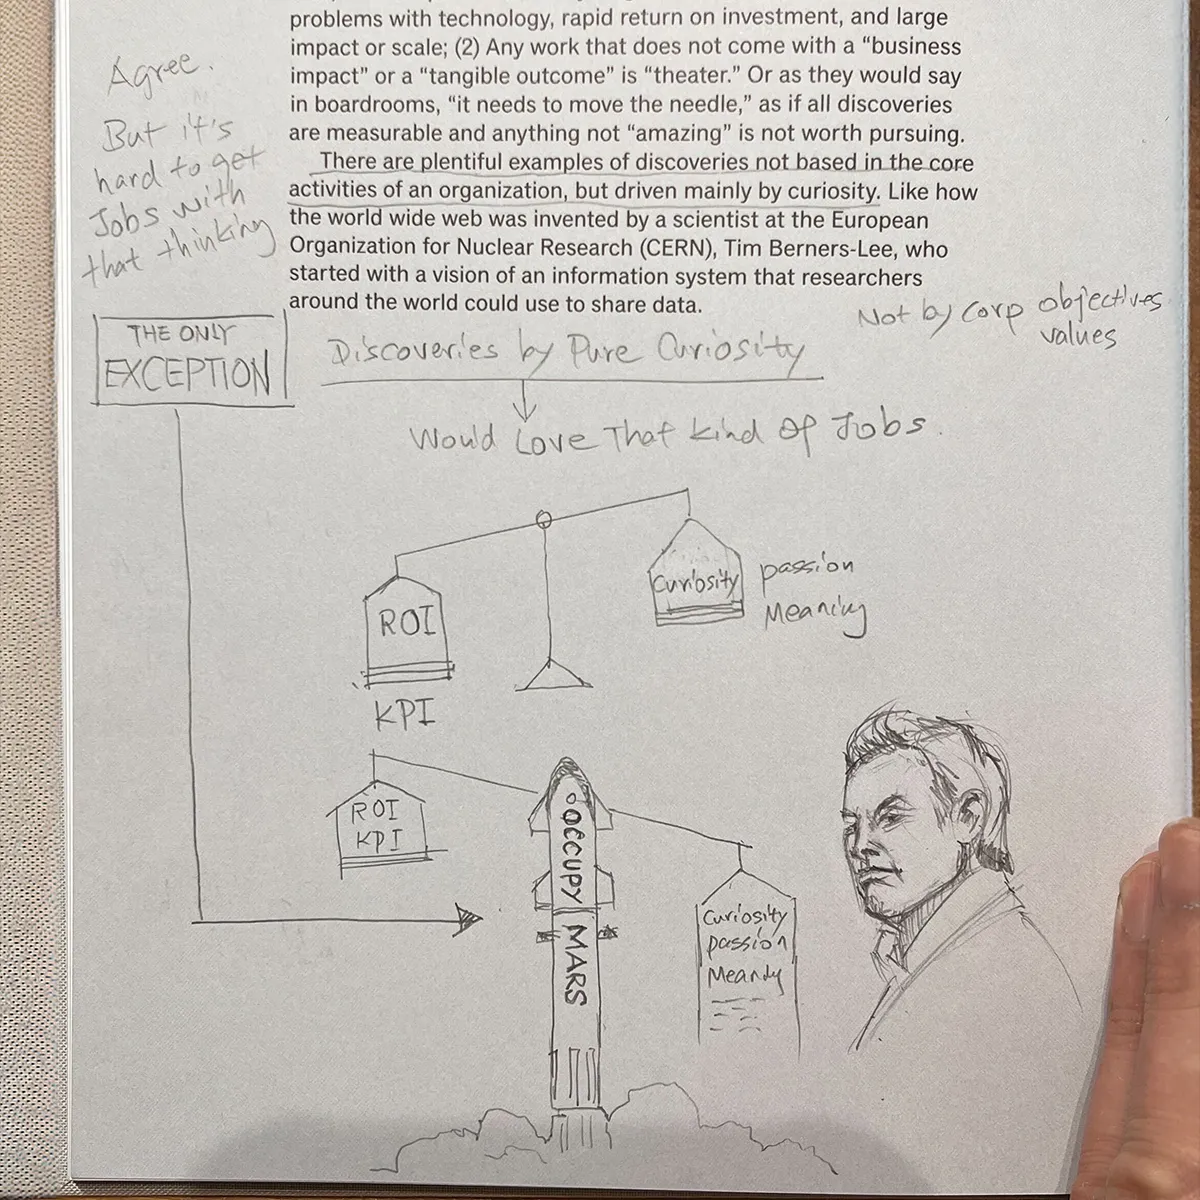 problems with technology, rapid return on investment, and large
impact or scale; (2) Any work that does not come with a “business
impact” or a “tangible outcome” is “theater.” Or as they would say
in boardrooms, “it needs to move the needle,” as if all discoveries
are measurable and anything not “amazing” is not worth pursuing.
There are plentiful examples of discoveries not based in the core
activities of an organization, but driven mainly by curiosity. Like how
the world wide web was invented by a scientist at the European
Organization for Nuclear Research (CERN), Tim Berners-Lee, who
started with a vision of an information system that researchers
around the world could use to share data.
Agree.
But it's
hard to get
Jobs with
that thinking
Not by corp objectives
values
THE ONLY
EXCEPTION
Discoveries by Pure Curiosity
Would Love That kind of Jobs.
ROI
KPI
Curiosity
passion
Meaning
ROI
KPI
OCCUPY MARS
Curiosity
passion